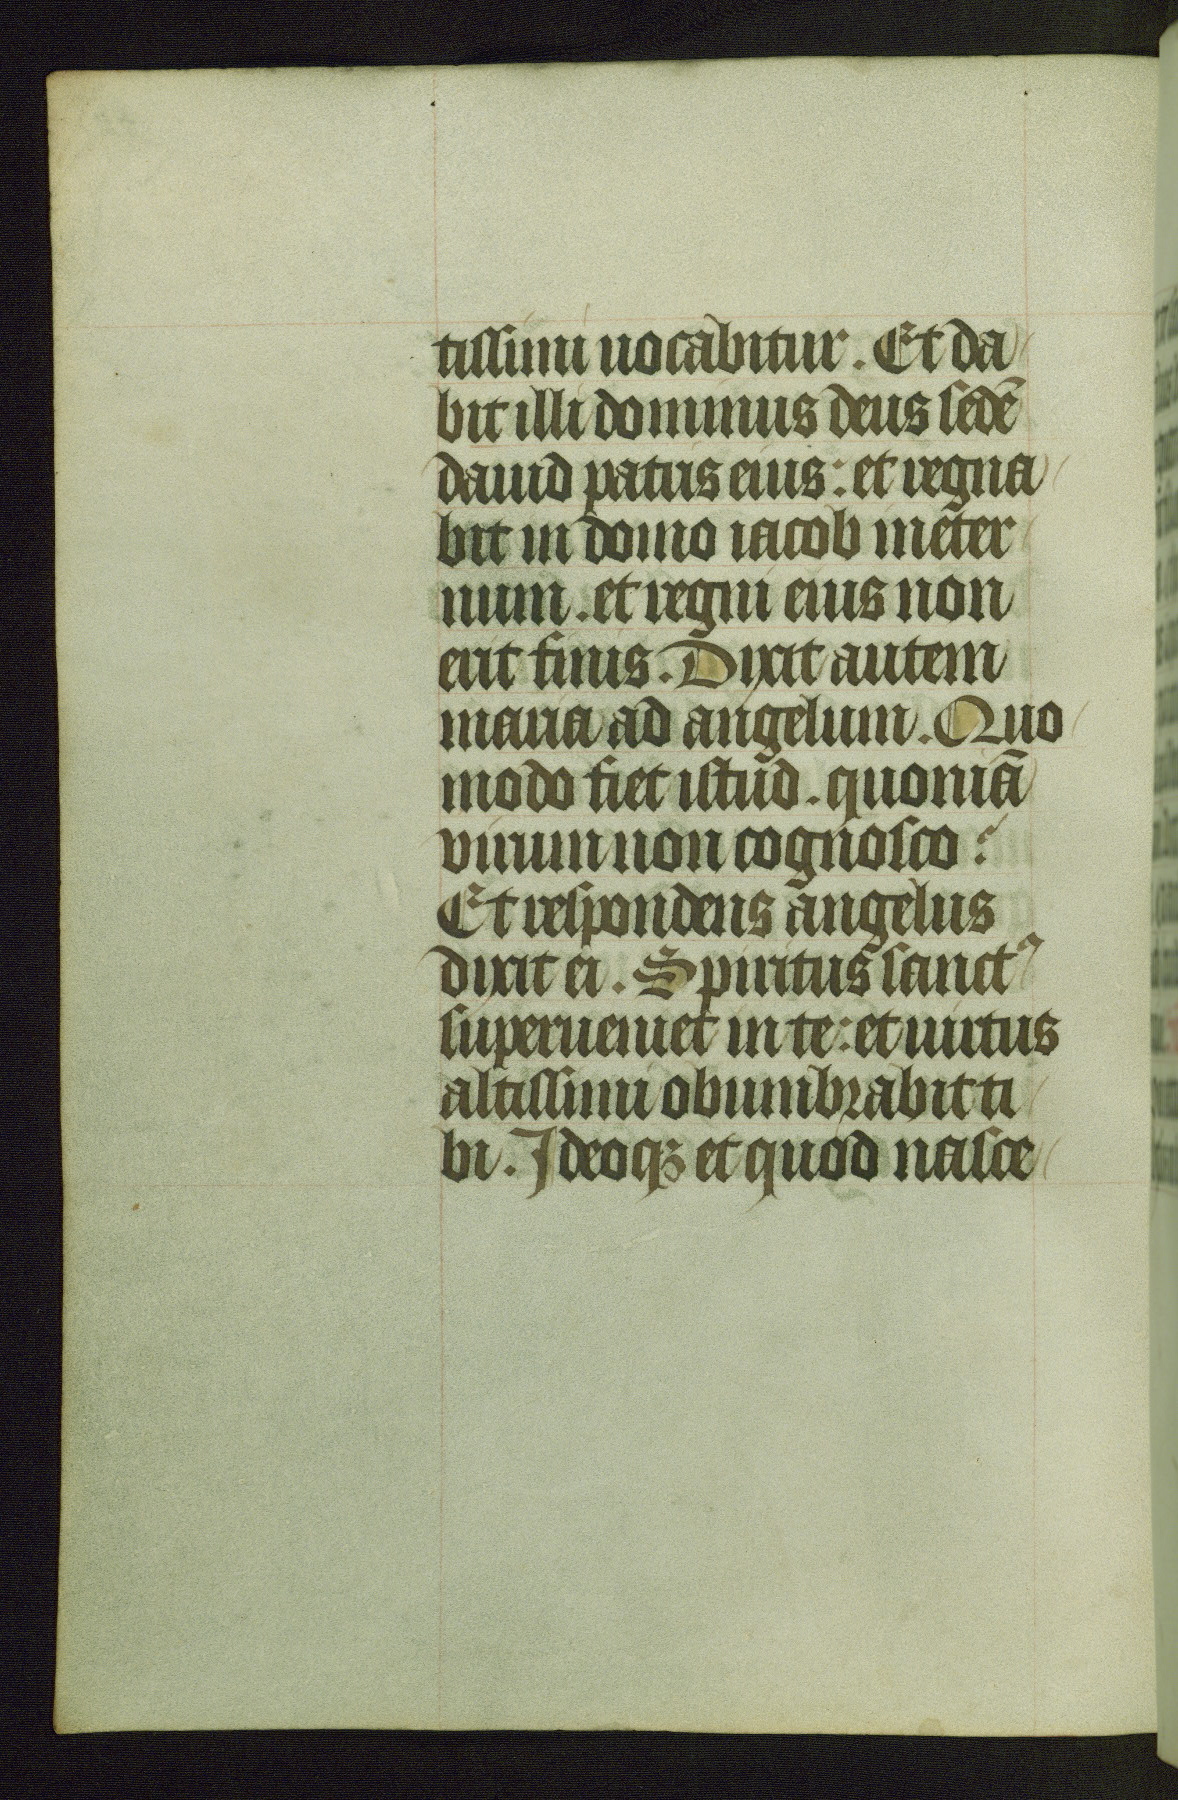 tissimi uocabitur. Et da
bit illi dominus deus sedē
dauid patris eius: et regna
bit in domo iacob in eter
num. et regni eius non
erit finis. Dixit autem
maria ad angelum. Quo
modo fiet istud. quoniā
virum non cognosco?
Et respondens angelus
dixit ei. Spiritus sanctꝰ
superueniet in te: et uirtus
altissimi obumbrabit ti
bi. Ideoqꝫ et quod nasce